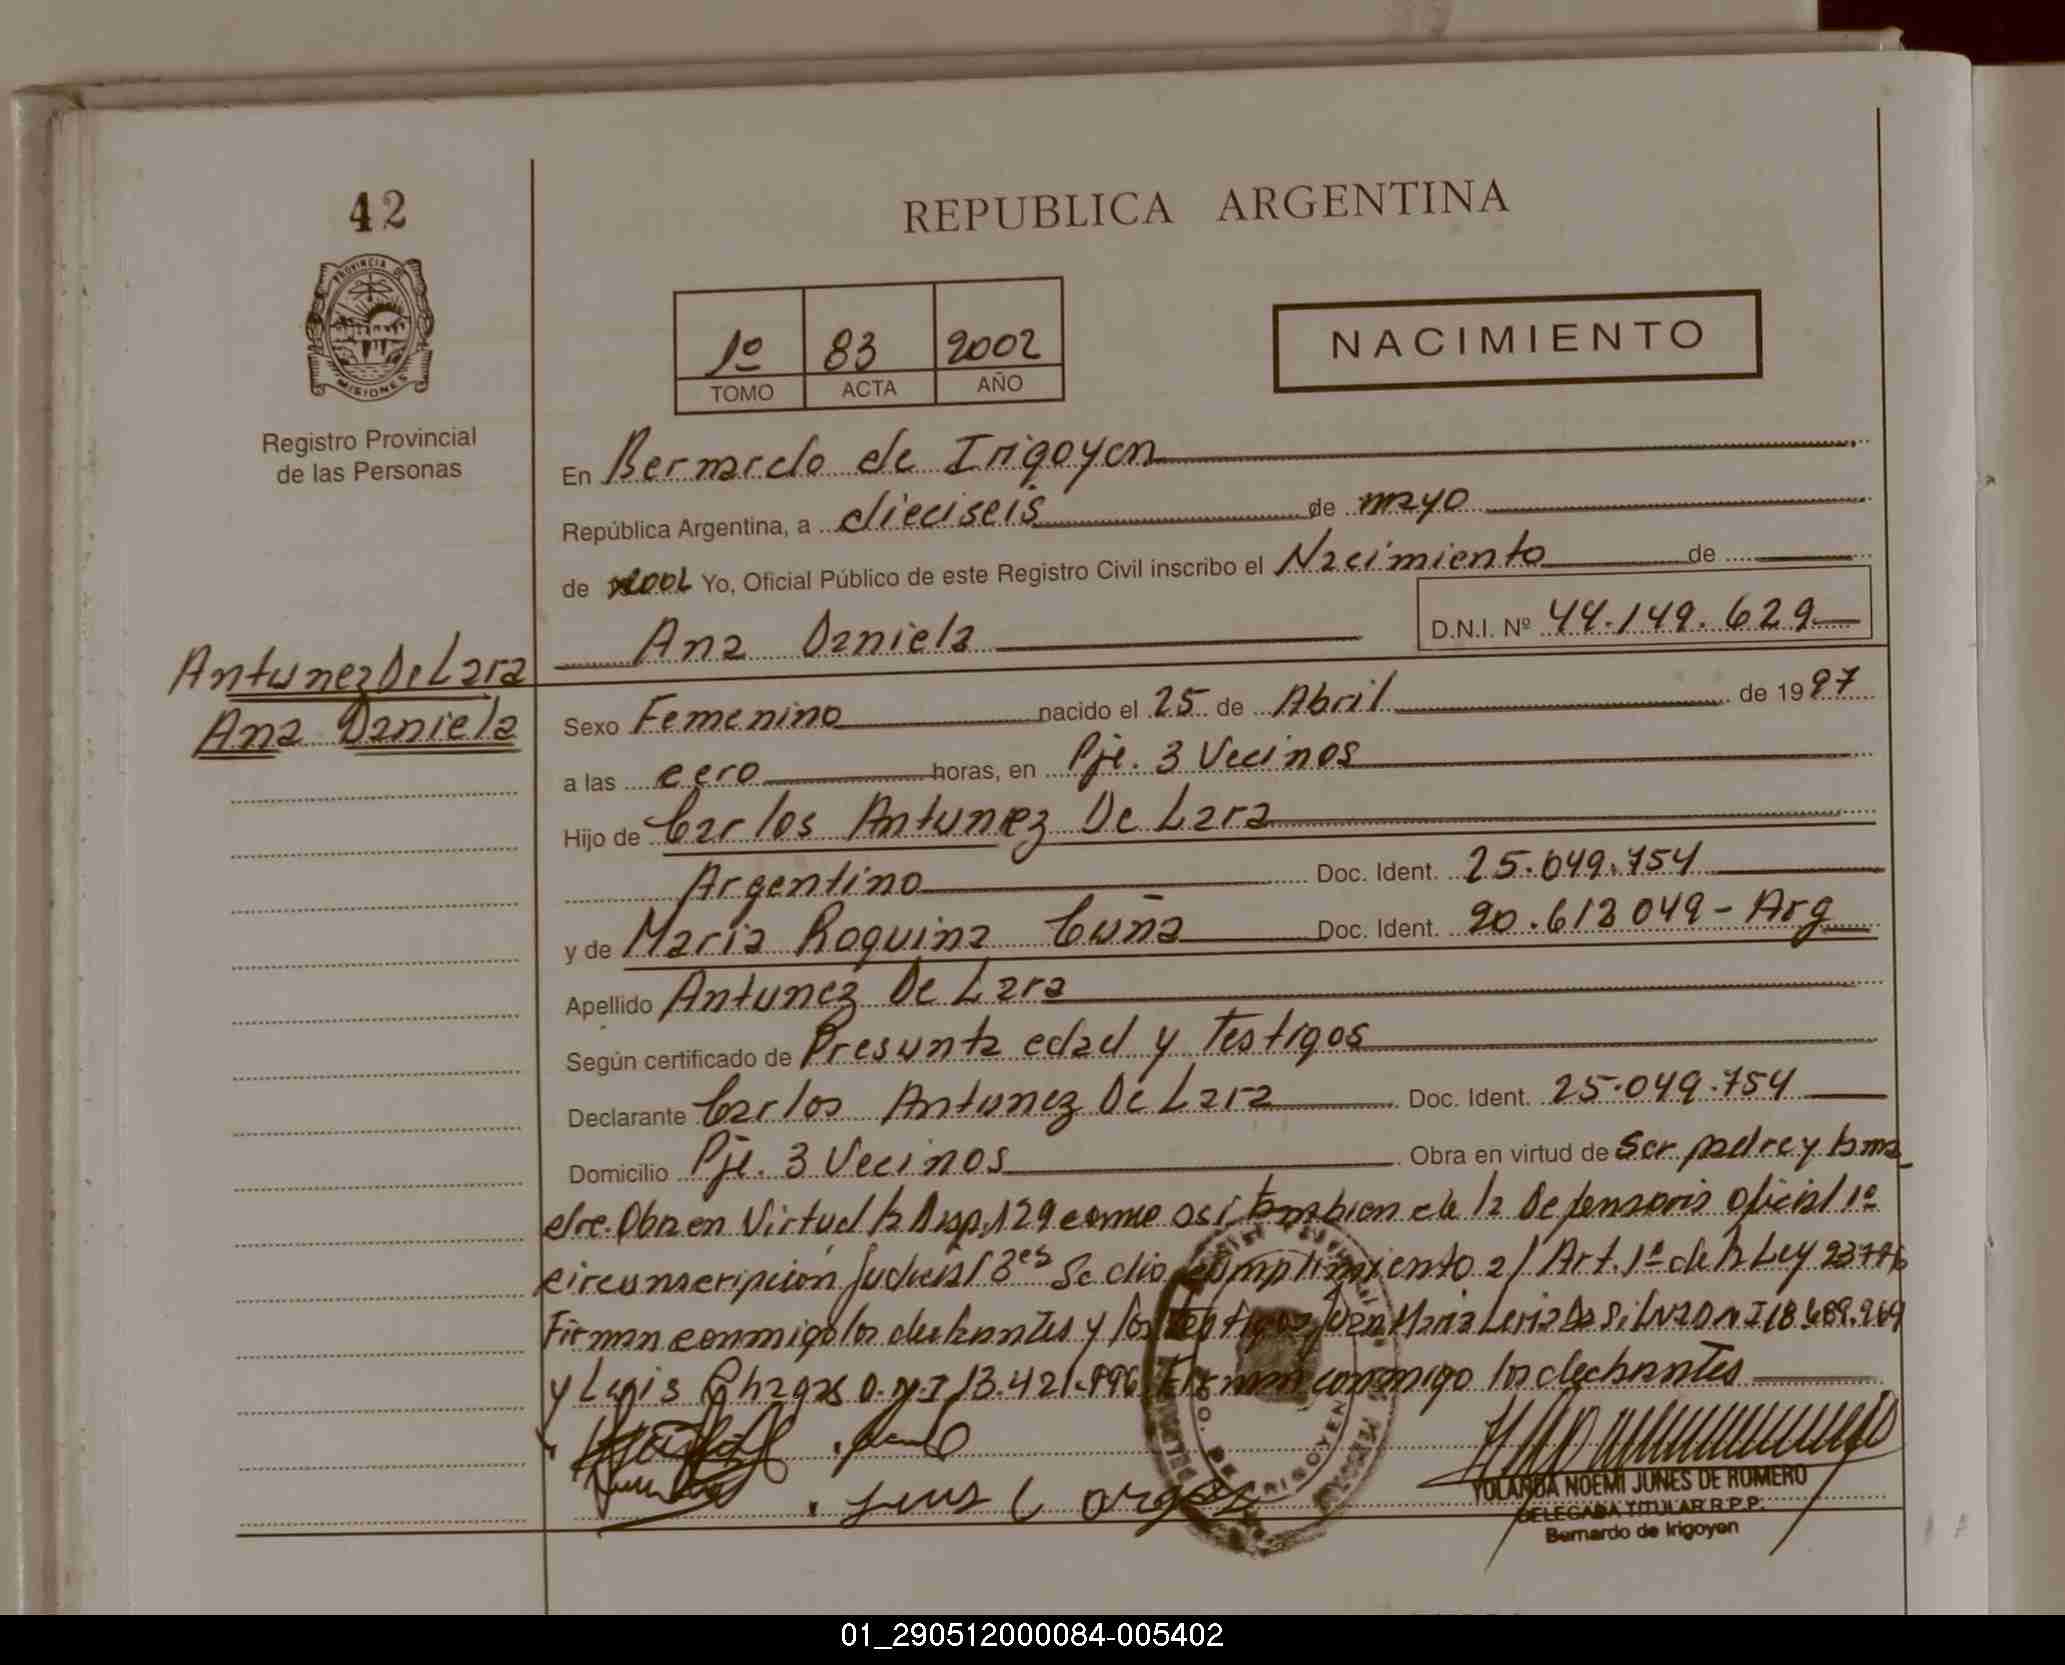 42
REPUBLICA ARGENTINA
PROVINCIA DE
MISIONES
1º 83 2002
TOMO ACTA AÑO
NACIMIENTO
Registro Provincial
de las Personas
En Bernardo de Irigoyen
República Argentina, a dieciseis de mayo
de 2002 Yo, Oficial Público de este Registro Civil inscribo el Nacimiento de
Ana Daniela D.N.I. Nº 44.149.629
Antunez De Lara
Ana Daniela
Sexo Femenino nacido el 25 de Abril de 1997
a las cero horas, en Pje. 3 Vecinos
Hijo de Carlos Antunez De Lara
Argentino Doc. Ident. 25.049.754
y de Maria Roquina Cuña Doc. Ident. 90.613049 - Arg
Apellido Antunez De Lara
Según certificado de Presunta edad y Testigos
Declarante Carlos Antunez De Lara Doc. Ident. 25.049.754
Domicilio Pje. 3 Vecinos Obra en virtud de Ser padre y la ma
dre. Obra en Virtud la Disp. 129 como asi tambien de la Defensoria Oficial 1º
circunscripcion Judicial Se dio cumplimiento al Art. 1º de la Ley 23776
Firman conmigo los declarantes y los testigos Juan Maria Da Silva D.N.I 18.689.969
y Luis Chagas D.N.I 13.421.896 Firman conmigo los declarantes
DE IRIGOYEN
YOLANDA NOEMI JUNES DE ROMERO
DELEGADA TITULAR R.P.P.
Bernardo de Irigoyen
01_290512000084-005402